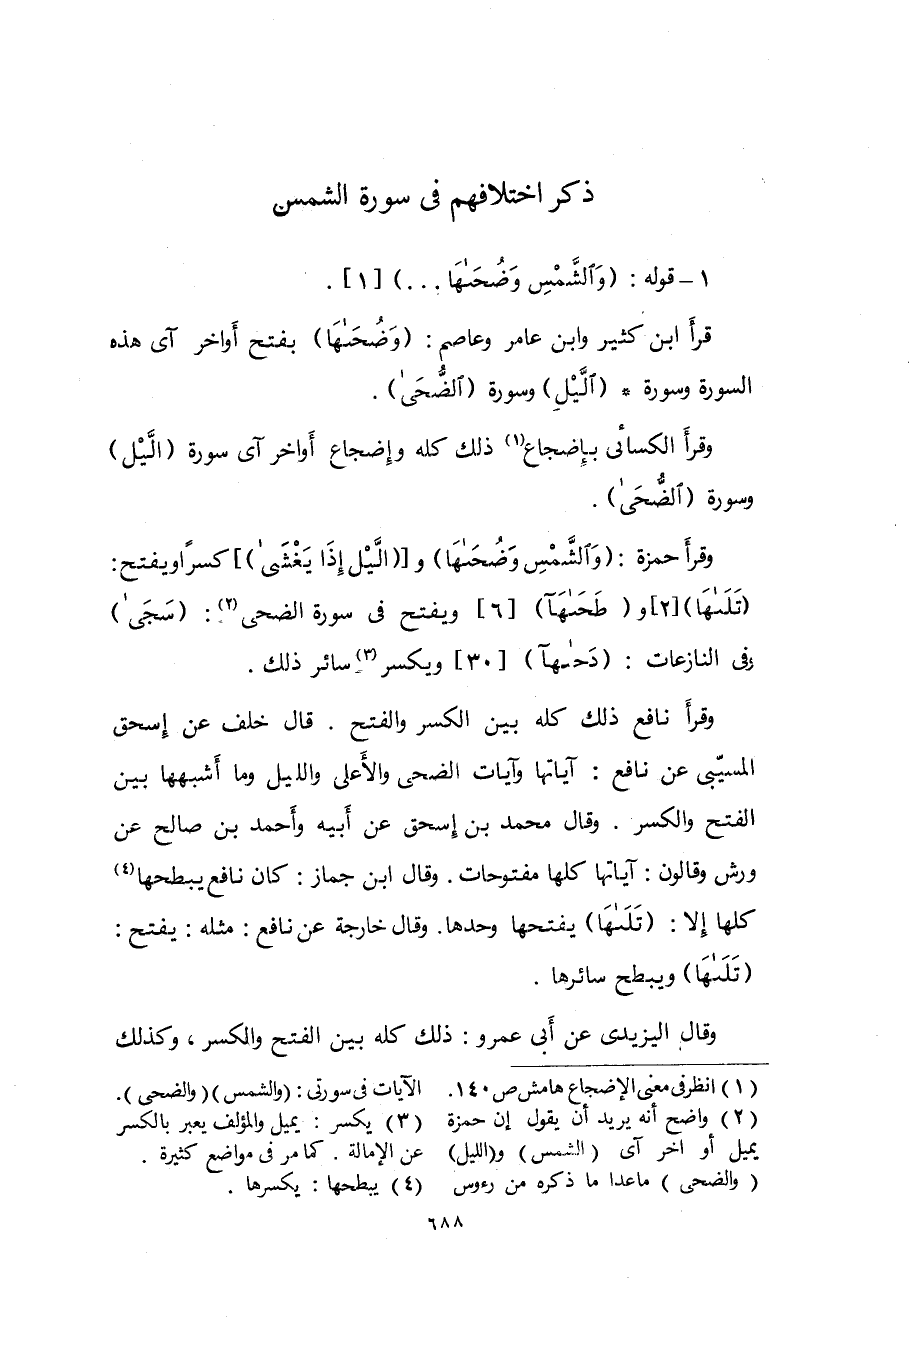 ذكر اختلافهم فى سورة الشمس
١ – قوله : (وَٱلشَّمْسِ وَضُحَىٰهَا ...) [١] .
قرأَ ابن كثير وابن عامر وعاصم : (وَضُحَىٰهَا) بفتح أَواخر آى هذه
السورة وسورة * (ٱلَّيْلِ) وسورة (ٱلضُّحَىٰ) .
وقرأَ الكسائى بإِضجاع(١) ذلك كله وإِضجاع أَواخر آى سورة (الَّيْل)
وسورة (ٱلضُّحَىٰ) .
وقرأَ حمزة : (وَٱلشَّمْسِ وَضُحَىٰهَا) و [(الَّيْلِ إِذَا يَغْشَىٰ)] كسرًا ويفتح :
(تَلَىٰهَا) [٢] و ( طَحَىٰهَآ) [٦] ويفتح فى سورة الضحى(٢) : (سَجَىٰ )
وفى النازعات : (دَحَىٰهآ) [٣٠] ويكسر(٣) سائر ذلك .
وقرأَ نافع ذلك كله بين الكسر والفتح . قال خلف عن إِسحق
المسيّبى عن نافع : آياتها وآيات الضحى والأَعلى والليل وما أَشبهها بين
الفتح والكسر . وقال محمد بن إِسحق عن أَبيه وأَحمد بن صالح عن
ورش وقالون : آياتها كلها مفتوحات . وقال ابن جماز : كان نافع يبطحها(٤)
كلها إِلا : (تَلَىٰهَا) يفتحها وحدها. وقال خارجة عن نافع : مثله : يفتح :
(تَلَىٰهَا) ويبطح سائرها .
وقال اليزيدى عن أَبى عمرو : ذلك كله بين الفتح والكسر ، وكذلك
(١) انظر فى معنى الإضجاع هامش ص ١٤٠.
(٢) واضح أنه يريد أن يقول إن حمزة
يميل أو اخر آى ( الشمس) و(الليل)
( والضحى ) ماعدا ما ذكره من رءوس
الآيات فى سورتى : (والشمس) ( والضحى ).
(٣) يكسر : يميل والمؤلف يعبر بالكسر
عن الإمالة . كما مر فى مواضع كثيرة .
(٤) يبطحها : يكسرها .
٦٨٨